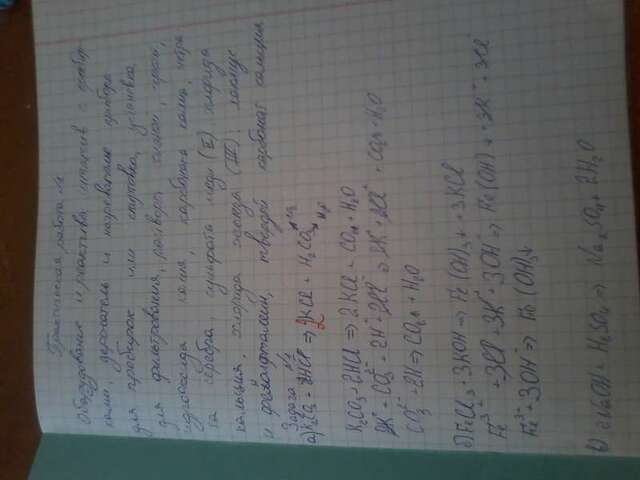 Практическая работа №
Оборудование и реактивы: штатив с пробир-
ками, держатель и нагреватель прибора
для пробирок или спиртовка, установка
для фильтрования, раствор соляной,
гидроксида калия, карбоната калия, нитра
та серебра, сульфата меди (II), хлорида
кальция, хлорида железа (III), лакмус
и фенолфталеин, твёрдый карбонат кальция
Задача №3
K₂CO₃ + 2HCl => 2KCl + CO₂↑ + H₂O
2K⁺ + CO₃²⁻ + 2H⁺ + 2Cl⁻ => 2K⁺ + 2Cl⁻ + CO₂↑ + H₂O
CO₃²⁻ + 2H => CO₂↑ + H₂O
б) FeCl₃ + 3KOH => Fe(OH)₃↓ + 3KCl
Fe³⁺ + 3Cl⁻ + 3K⁺ + 3OH⁻ => Fe(OH)₃↓ + 3K⁺ + 3Cl⁻
Fe³⁺ + 3OH⁻ => Fe(OH)₃↓
в) 2NaOH + H₂SO₄ => Na₂SO₄ + 2H₂O